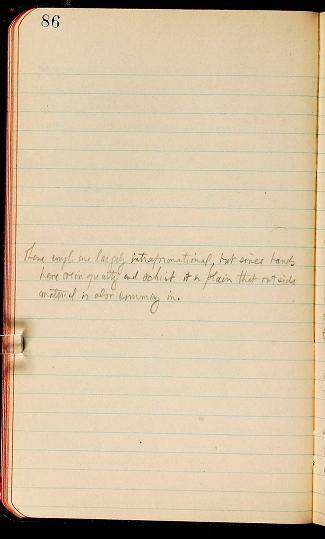 86
These congls are largely intraformational, but since bands
have vein quartz and schist it is plain that outside
material is also coming in.